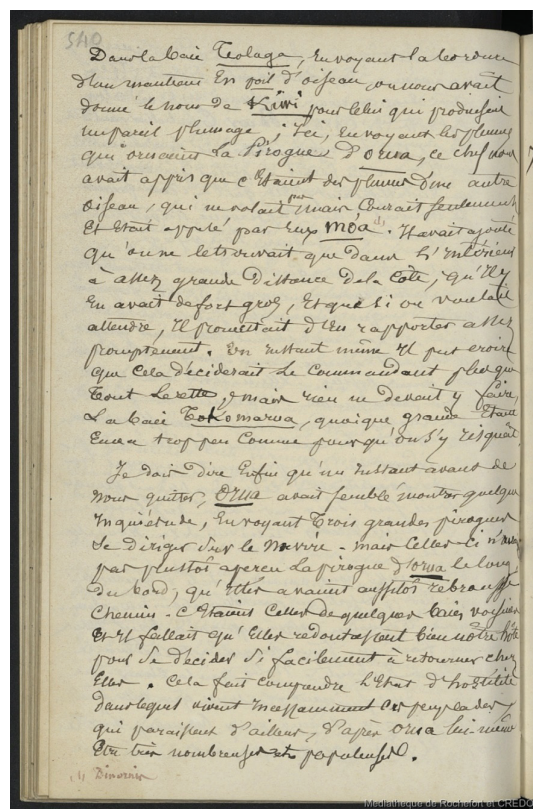 540
Dans la baie Tolaga, En voyant la bordure
d'un manteau En poil d'oiseau, on nous avait
donné le nom de Kiwi pour celui qui produisait
un pareil plumage ; Ici, En voyant les plumes
qui ornaient La Pirogue d'Orua, ce chef nous
avait appris que c'Etaient des plumes d'un autre
oiseau, qui ne volait pas mais Courait seulement
Et Etait appelé par Eux móa (1). Il avait ajouté
qu'on ne le trouvait que dans L'Intérieur
à assez grande Distance de la Côte, qu'Il y
En avait de fort gros, Et que si on voulait
attendre, Il promettait d'En rapporter assez
promptement. Un Instant même Il put croire
que Cela déciderait Le Commandant plus que
Tout Le reste, mais rien ne devait y faire,
La baie Tokomarua, quoique grande Etant
Encore trop peu Connue pour qu'on s'y risquât.
Je dois Dire Enfin qu'un Instant avant de
nous quitter, Orua avait semblé montrer quelque
Inquiétude, En voyant Trois grandes pirogues
se diriger sur le Navire. mais Celles-Ci n'eurent
pas plustôt aperçu La pirogue d'Orua le long
du bord, qu'Elles avaient aussitôt rebroussé
Chemin. C'Etaient Celles de quelques baies voisines
Et Il fallait qu'Elles redoutassent bien nôtre hôte
pour se décider si facilement à retourner chez
Elles. Cela fait comprendre L'Etat d'hostilité
dans lequel vivent Incessamment Ces peuplades,
qui paraissent d'ailleurs, d'après Orua lui-même
Etre très nombreuses et populeuses.
(1) Dinornis
Médiathèque de Rochefort et CREDO